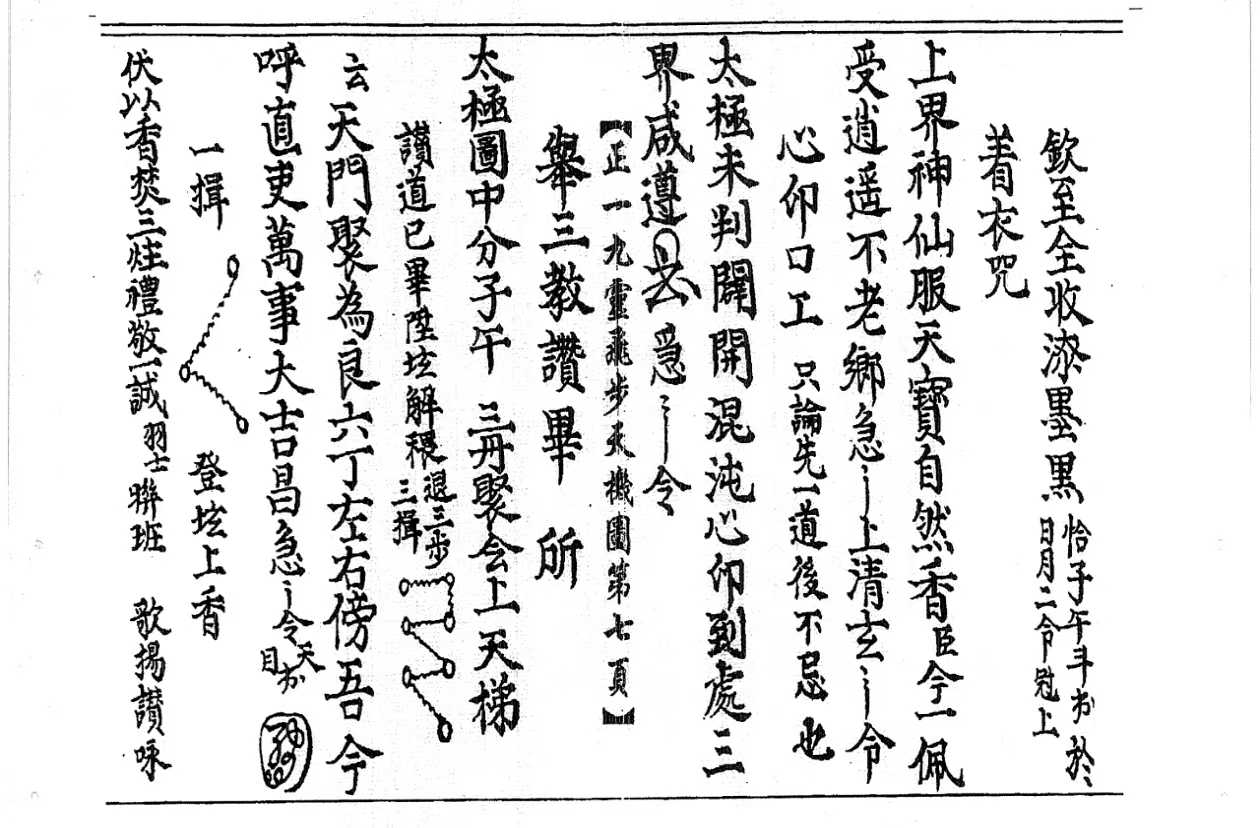 欽至全收漆墨黑 恰子午斗於
日月二令冠上
着衣咒
上界神仙服天寶自然香臣今一佩
受逍遥不老鄉急〻上清玄〻令
心印口工 只論先一道後不忌也
太極未判闢開混沌心印到處三
界咸遵 急〻令
【正一九靈飛步天機圖第七頁】
舉三教讚畢 所
太極圖中分子午 三丹聚会上天梯
讚道已畢陞坛解穢 退三步
三揖
云天門聚為良六丁左右傍吾今
呼直吏萬事大吉昌急〻令 天
目
一揖 登坛上香
伏以香焚三炷禮敬一誠羽士聨班 歌揚讚咏